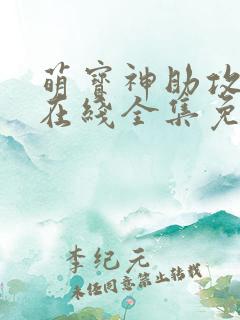 萌寳神助攻
在綫全集免
李纪元
未经同意禁止转载